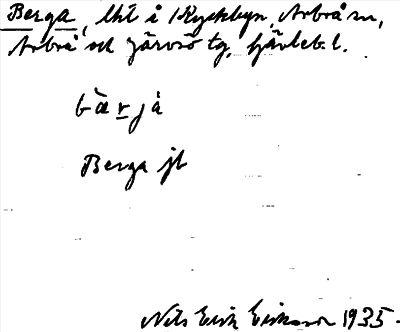 Berga, lht i Kyckbyn, Arbrå sn,
Arbrå och Järvsö tg, Gävleb. l.
bärjà
Berga jb
Nils Erik Eriksson 1935.